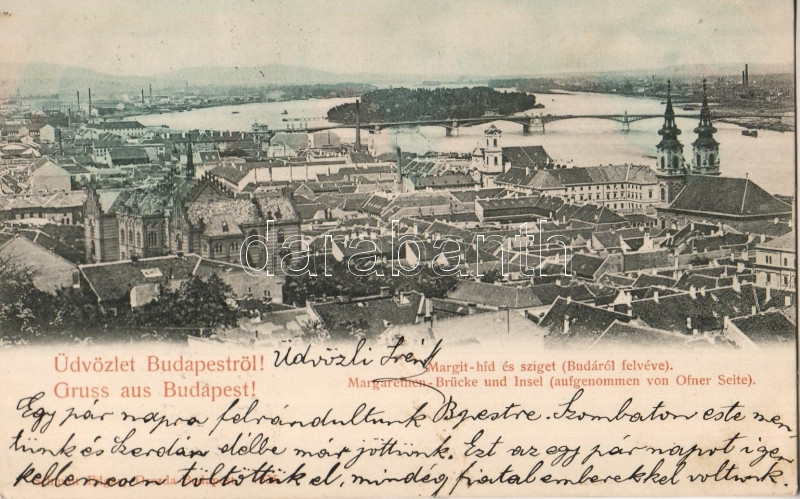 darabanth
Üdvözlet Budapeströl! Üdvözli Irén
Margit-híd és sziget (Budáról felvéve).
Gruss aus Budapest!
Margarethen-Brücke und Insel (aufgenommen von Ofner Seite).
Egy pár napra felrándultunk Bpestre. Szombaton este men-
tünk és Szerdán délbe már jöttünk. Ezt az egy pár napot igen
kellemesen töltöttük el, mindég fiatal emberekkel voltunk